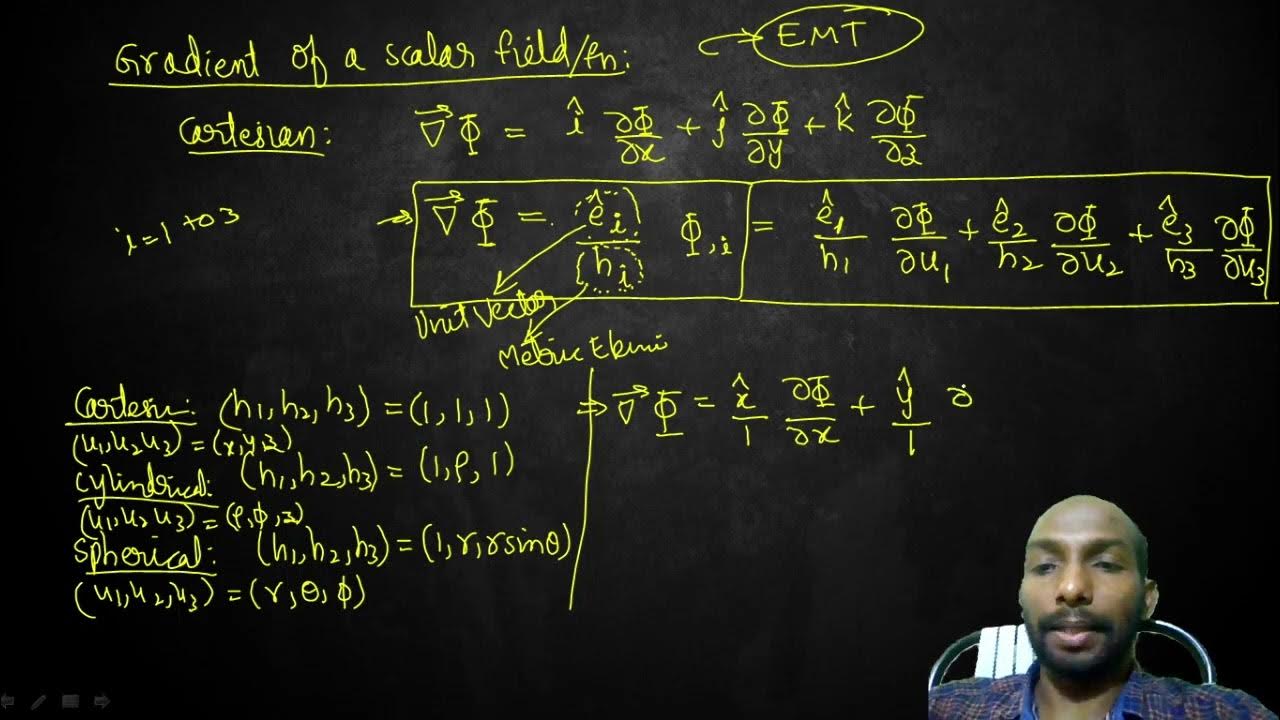 Gradient of a scalar field/fn:
EMT
Cartesian: ∇⃗Φ = î ∂Φ/∂x + ĵ ∂Φ/∂y + k̂ ∂Φ/∂z
i=1 to 3
→ ∇⃗Φ = êᵢ/hᵢ Φ,ᵢ = ê₁/h₁ ∂Φ/∂u₁ + ê₂/h₂ ∂Φ/∂u₂ + ê₃/h₃ ∂Φ/∂u₃
Unit Vector
Metric
(h₁,h₂,h₃) = (1,1,1)
(u₁,u₂,u₃) = (x,y,z)
Cylindrical: (h₁,h₂,h₃) = (1,ρ,1)
(u₁,u₂,u₃) = (ρ,ϕ,z)
Spherical: (h₁,h₂,h₃) = (1,r,rsinθ)
(u₁,u₂,u₃) = (r,θ,ϕ)
⇒ ∇⃗Φ = x̂/1 ∂Φ/∂x + ŷ/1 ∂